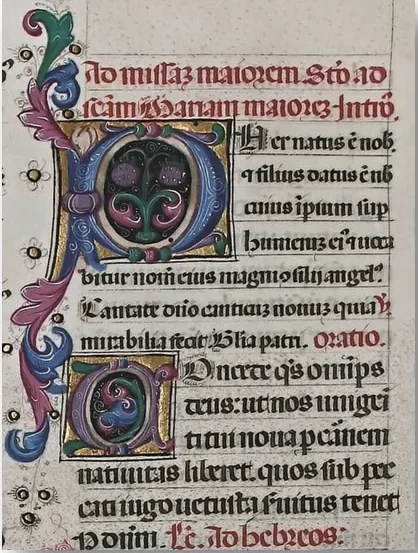 Ad missaz maiorem. Stō ad
scām Mariam maiorez. Introˢ.
Puer natus ē nob.
⁊ filius datus ē nb
cuius īpium sup
humeruz eiˀ ⁊ uoca
bitur nom̄ eius magniꝯsilij angelˀ.
Cantate dn̄o canticuz nouuz quia V̇.
mirabilia fecit. Gl̄ia patri. oratio.
Concede qs om̄ips
deus: ut nos unigēi
tui tui noua p carnem
natiuitas liberet. quos sub pec
cati iugo uetusta seruitus tenet
P dn̄m. Lc̄. Ad hebreos: